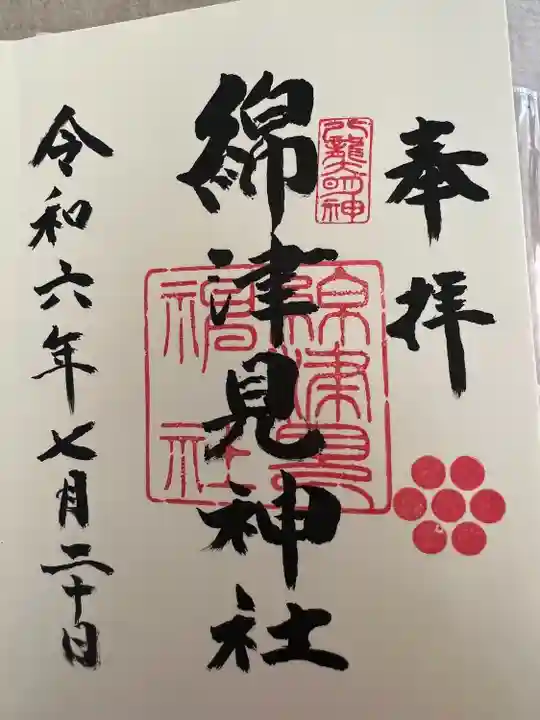 奉拝
八龍大明神
綿津見神社
綿津見神社
令和六年七月二十日